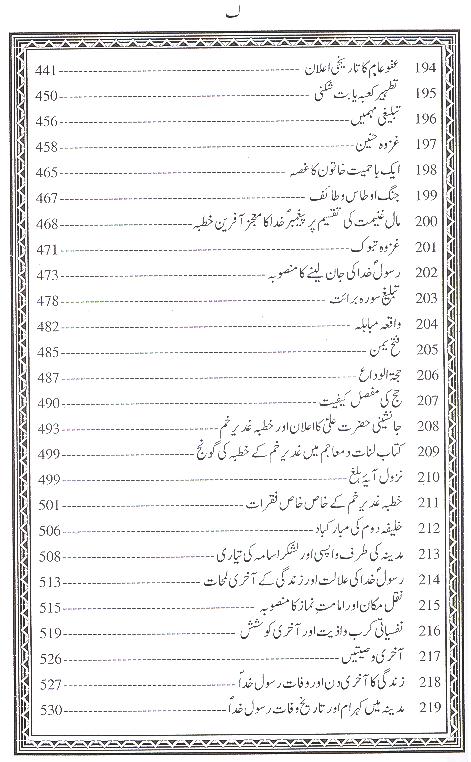 ل
194 عفو عام کا تاریخی اعلان 441
195 تطہیر کعبہ یا بت شکنی 450
196 تبلیغی مہمیں 456
197 غزوہ حنین 458
198 ایک باحمیت خاتون کا غصہ 465
199 جنگ اوطاس و طائف 467
200 مال غنیمت کی تقسیم پر پیغمبرؐ خدا کا معجز آفرین خطبہ 468
201 غزوہ تبوک 471
202 رسولؐ خدا کی جان لینے کا منصوبہ 473
203 تبلیغ سورہ برائت 478
204 واقعہ مباہلہ 482
205 فتح یمن 485
206 حجۃ الوداع 487
207 حج کی مفصل کیفیت 490
208 جانشینی حضرت علیؑ کا اعلان اور خطبہ غدیر خم 493
209 کتاب لغات و معاجم میں غدیر خم کے خطبہ کی گونج 499
210 نزول آیۂ بلغ 499
211 خطبہ غدیر خم کے خاص خاص فقرات 501
212 خلیفہ دوم کی مبارکباد 506
213 مدینہ کی طرف واپسی اور لشکر اسامہ کی تیاری 508
214 رسولؐ خدا کی علالت اور زندگی کے آخری لمحات 513
215 نقل مکان اور امامت نماز کا منصوبہ 515
216 نفسیاتی کرب و اذیت اور آخری کوشش 519
217 آخری وصیتیں 526
218 زندگی کا آخری دن اور وفات رسول خداؐ 527
219 مدینہ میں کہرام اور تاریخ وفات رسول خداؐ 530